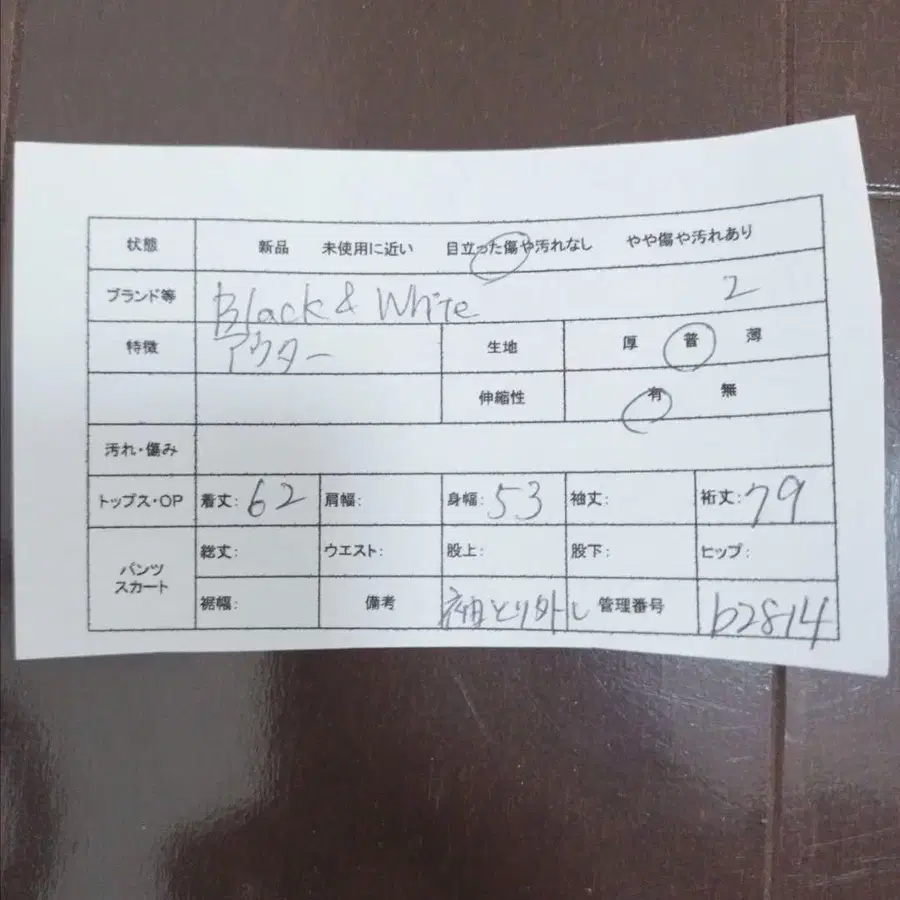 状態 新品 未使用に近い 目立った傷や汚れなし やや傷や汚れあり
ブランド等 Black & White 2
特徴 アウター 生地 厚 普 薄
伸縮性 有 無
汚れ・傷み
トップス・OP 着丈: 62 肩幅: 身幅: 53 袖丈: 裄丈: 79
パンツ
スカート
総丈: ウエスト: 股上: 股下: ヒップ:
裾幅: 備考 袖とり外し 管理番号 b2814